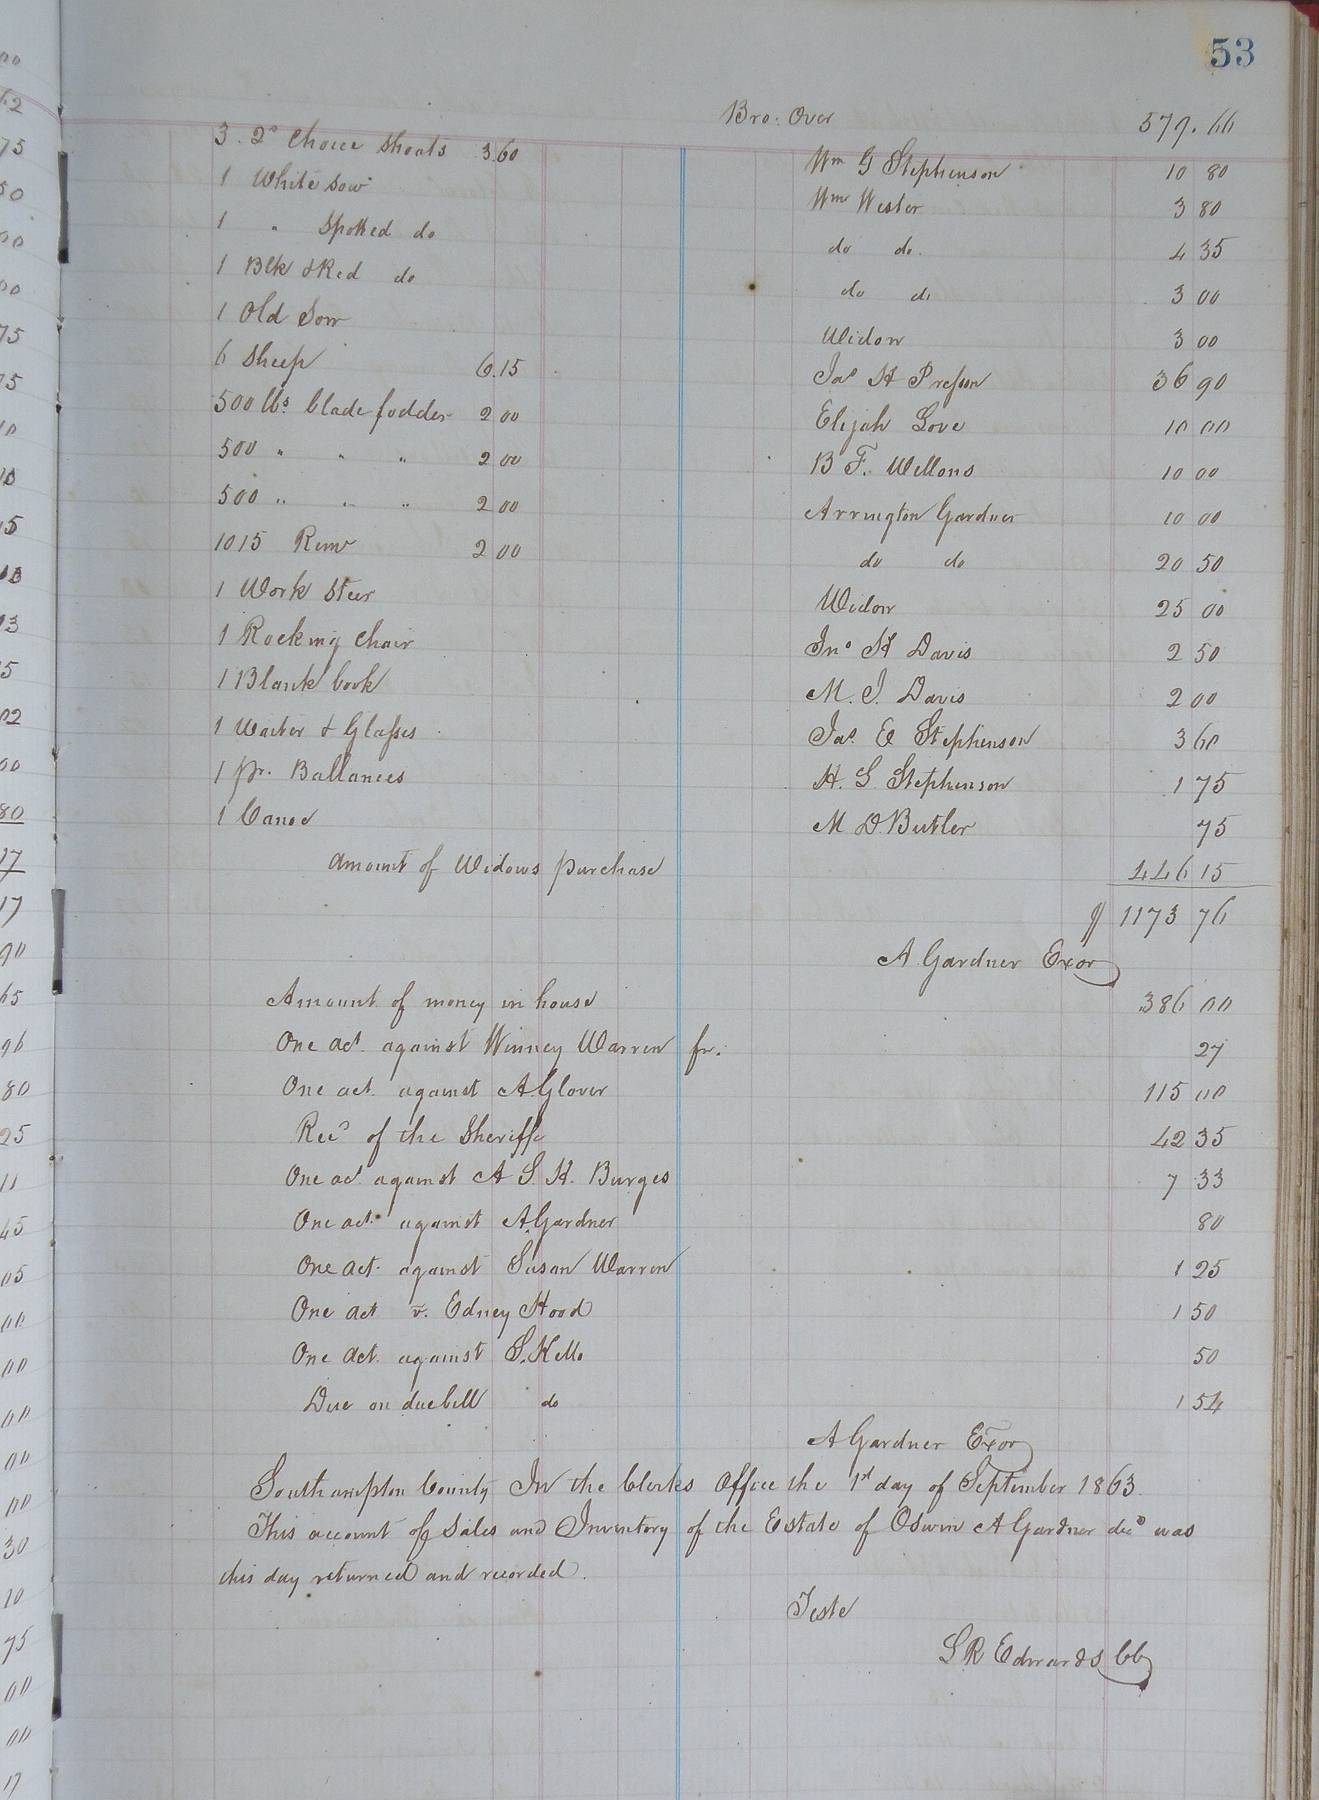 53
Bro. Over 579.66
3. 2d Choice Shoats 3.60 Wm G Stephenson 10 80
1 White Sow Wm Wester 3 80
1 " Spotted do do do. 4 35
1 Blk & Red do do do 3 00
1 Old Sow Widow 3 00
6 Sheep 6.15 Jas H Presson 36 90
500 lbs. blade fodder 2 00 Elijah Love 10 00
500 " " " 2 00 B F. Wellons 10 00
500 " " " 2 00 Arrington Gardner 10 00
1015 Remr 2 00 do do 20 50
1 Work Steer Widow 25 00
1 Rocking Chair Jno H Davis 2 50
1 Blank book M. J. Davis 2 00
1 Waiter & Glasses Jas. E Stephenson 3 60
1 pr. Ballances H. G Stephenson 1 75
1 Canoe M D. Butler 75
Amount of Widows purchase 446 15
$ 1173 76
A Gardner Exor
Amount of money in house 386 00
One act. against Winney Warren fr. 27
One act. against A. Glover 115 00
Recd of the Sheriff 42 35
One act against A S. H. Burges 7 33
One act. against A. Gardner 80
One act. against Susan Warren 1 25
One act v. Edney Hood 1 50
One act. against S. Kello 50
Due on due bill do 1 54
A Gardner Exor
Southampton County In the Clerks Office the 1st day of September 1863.
This account of Sales and Inventory of the Estate of Oswin A Gardner decd was
this day returned and recorded.
Teste
L R Edwards CC